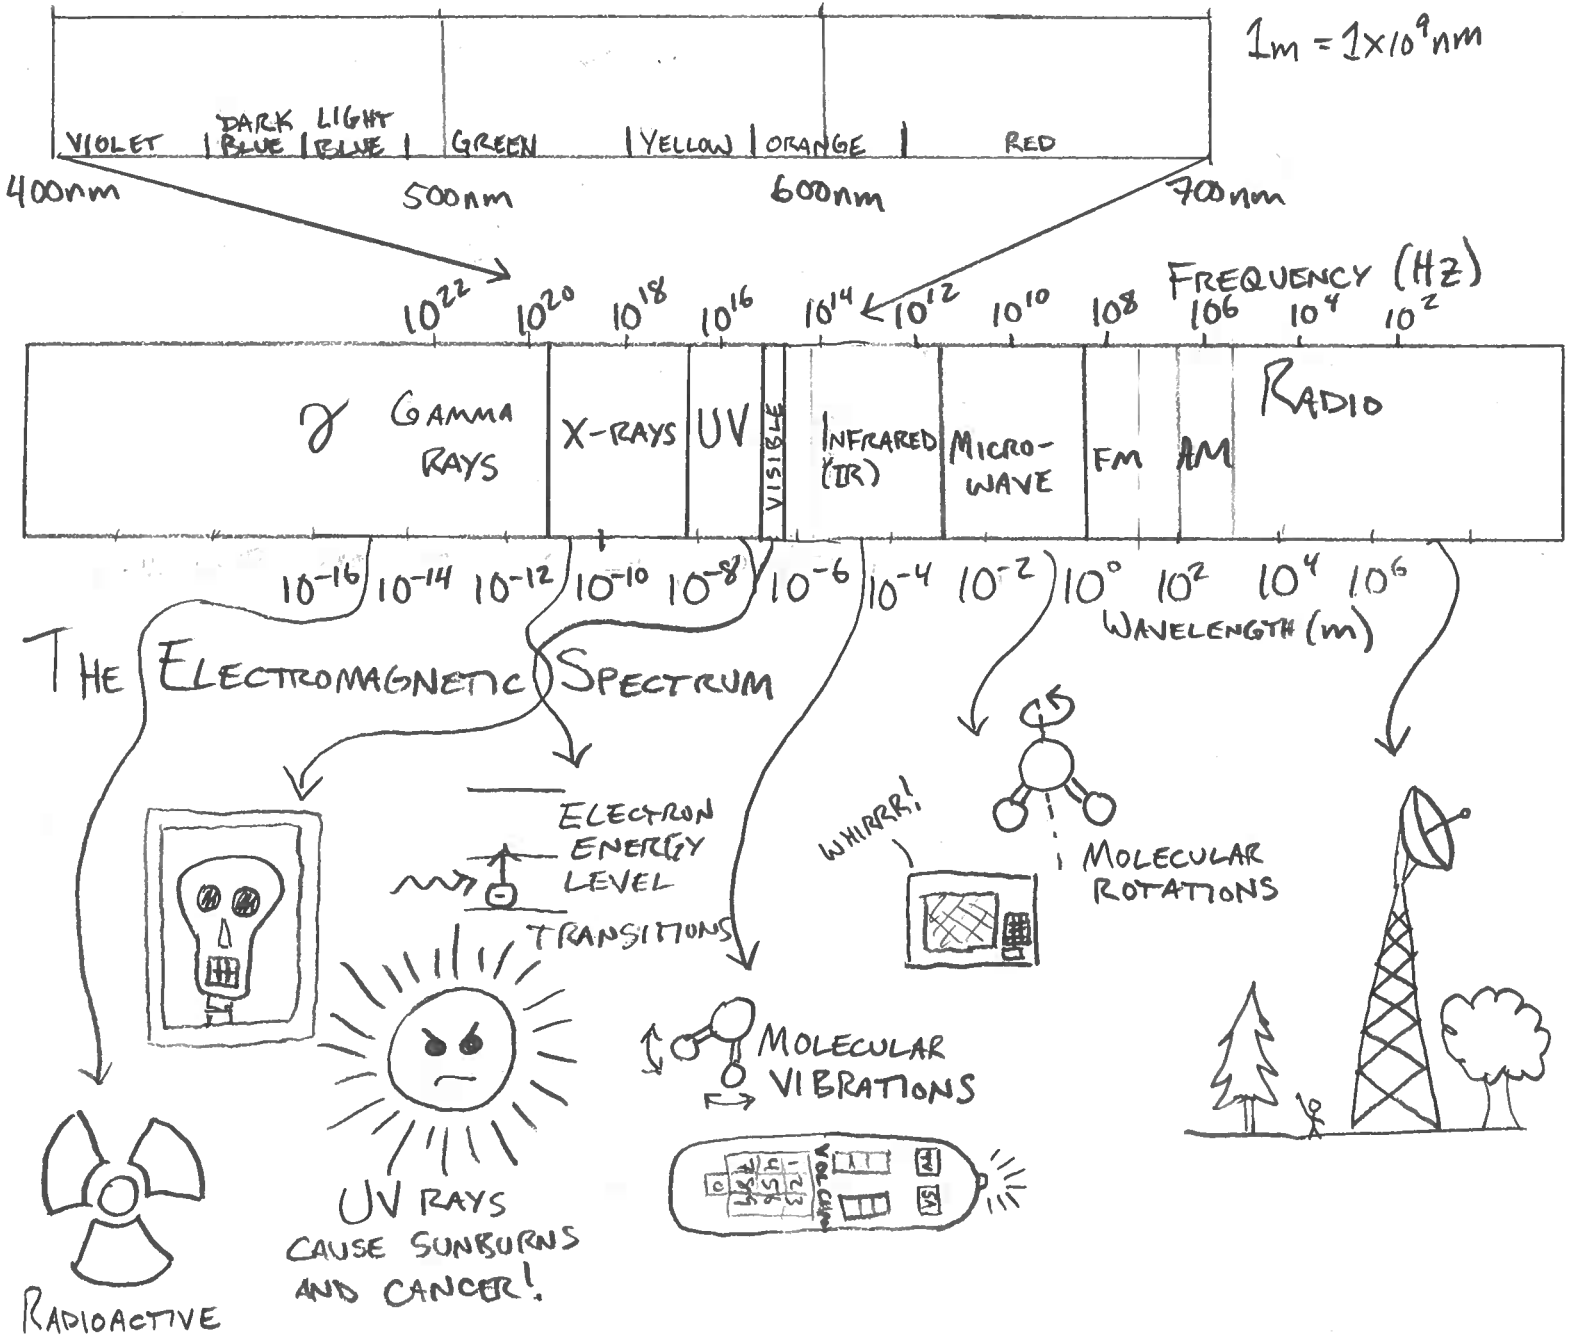 1m = 1x10⁹nm
VIOLET
DARK BLUE
LIGHT BLUE
GREEN
YELLOW
ORANGE
RED
400nm
500nm
600nm
700nm
FREQUENCY (HZ)
10²² 10²⁰ 10¹⁸ 10¹⁶ 10¹⁴ 10¹² 10¹⁰ 10⁸ 10⁶ 10⁴ 10²
γ GAMMA
RAYS
X-RAYS
UV
VISIBLE
INFRARED
(IR)
MICRO-
WAVE
FM
AM
RADIO
10⁻¹⁶ 10⁻¹⁴ 10⁻¹² 10⁻¹⁰ 10⁻⁸ 10⁻⁶ 10⁻⁴ 10⁻² 10⁰ 10² 10⁴ 10⁶
WAVELENGTH (m)
THE ELECTROMAGNETIC SPECTRUM
ELECTRON
ENERGY
LEVEL
TRANSITIONS
WHIRRR!
MOLECULAR
ROTATIONS
MOLECULAR
VIBRATIONS
UV RAYS
CAUSE SUNBURNS
AND CANCER!
RADIOACTIVE
VOL
1 2 3
4 5 6
7 8 9
0